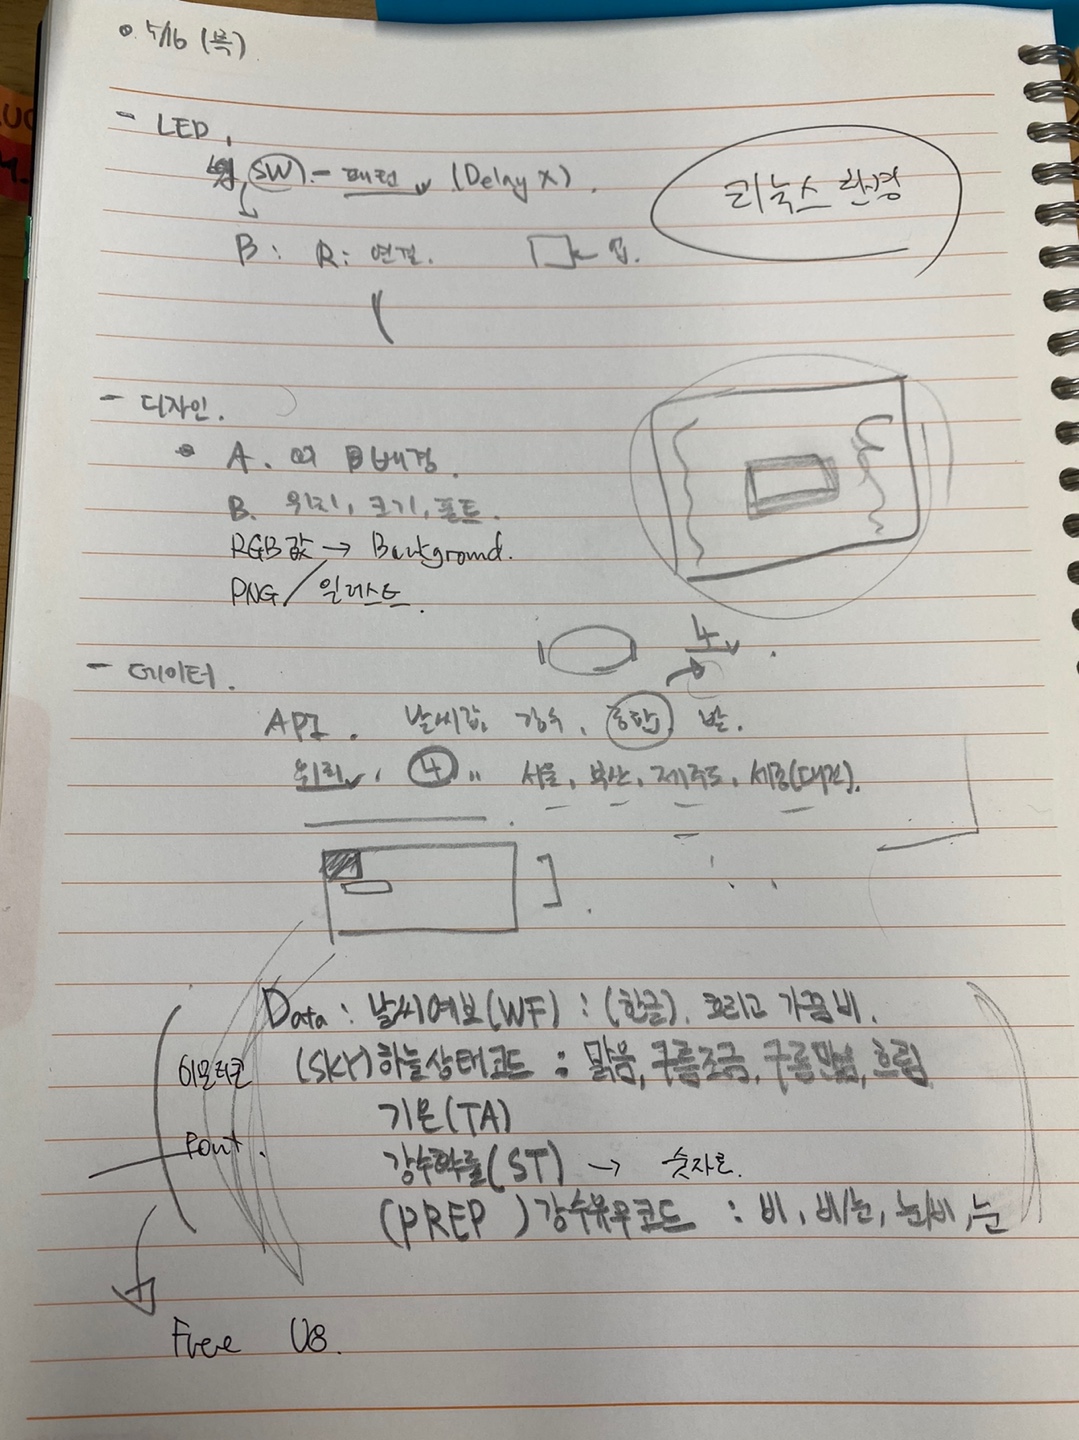 5/16 (목)
- LED.
SW - 패턴 (Delay X).
리눅스 환경
B : R : 연결.
- 디자인.
A. 배경.
B. 위치, 크기, 폰트.
RGB값 → Background.
PNG / 일러스트.
4
- 데이터.
API. 날씨값, 강수,
위치, 4 서울, 부산, 제주도, 세종(대전).
Data : 날씨예보(WF) : (한글). 흐리고 가끔 비.
이모티콘 (SKY)하늘상태코드 : 맑음, 구름조금, 구름많음, 흐림
기온(TA)
Font. 강수확률(ST) → 숫자로.
(PREP )강수유무코드 : 비, 비/눈, 눈/비, 눈
Free